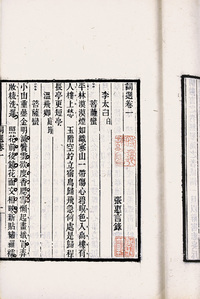 詞選卷一
張惠言錄
李太白
菩薩蠻
平林漠漠煙如織寒山一帶傷心碧暝色入高樓有
人樓上愁 玉階空竚立宿鳥歸飛急何處是歸程
長亭更短亭
溫飛卿
菩薩蠻
小山重疊金明滅鬢雲欲度香腮雪懶起畫蛾眉弄
妝梳洗遲 照花前後鏡花面交相映新貼繡羅襦